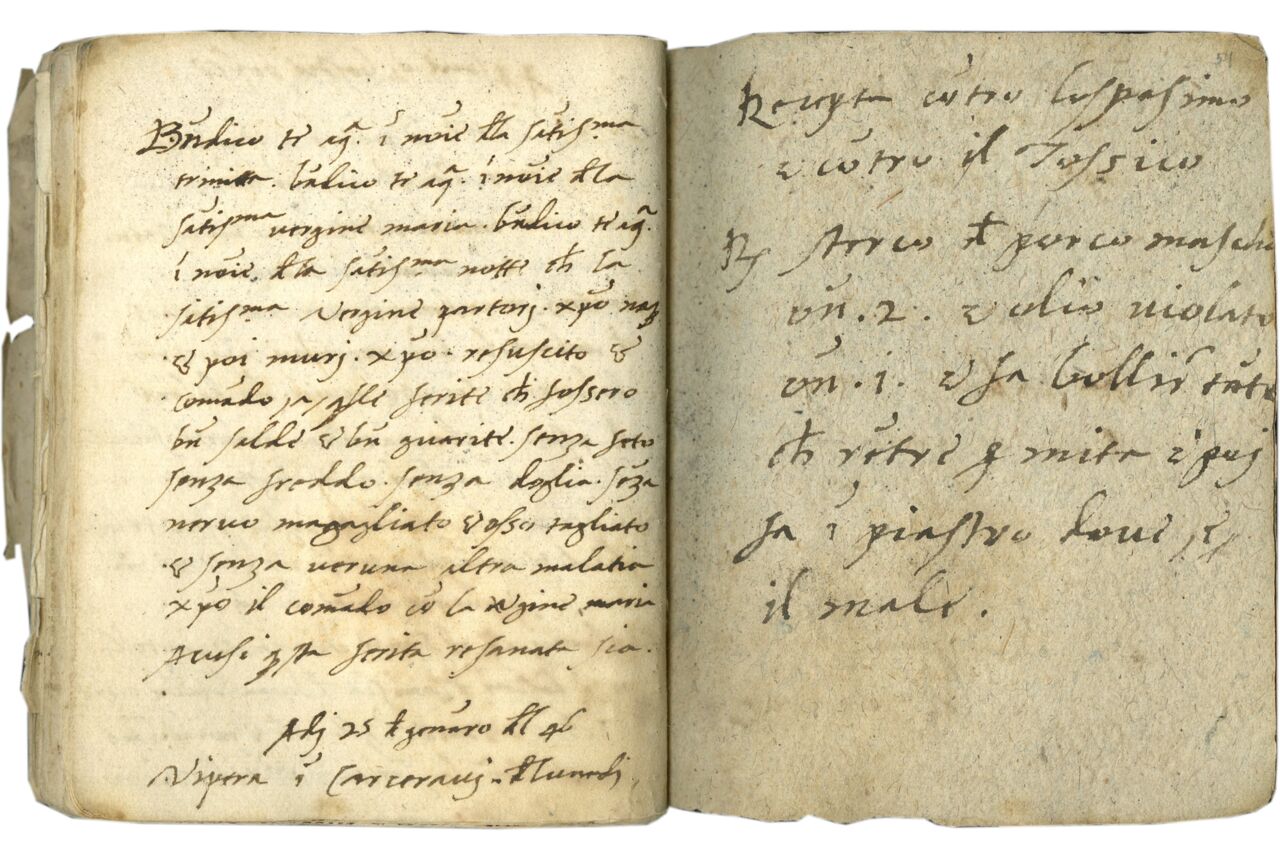 Bñdico te aq̃. ĩ noĩe d̃lla sãtisma
trinitta. bñdico te aq̃. ĩ noĩe d̃lla
sãtisma uergine maria. bñdico te aq̃.
ĩ noĩe. d̃lla sãtisma notte ch̃ la
sãtisma Vergine partorj. xp̃o naq̃
& poi murj. xp̃o. resuscito &
comãdo ferite ch̃ fossero
bñ salde & bñ guarite. senza feto
senza freddo. senza doglia. sẽza
neruo magagliato & osso tagliato
& senza ueruna altra malatia
xp̃o il comãdo cõ la ṽgine maria
Acusi q̃sta ferita resanata sia.
Adj 25 d̃ genaro d̃l 46
Vipera ĩ Carcerauj. d̃ lunedj
54
Receypta cõtro lo spasimo
& cõtro il Tossico
R sterco d̃ porco maschio
on̄. 2. & olio uiolato
on̄. 1. & fa bollir̃ tãto
ch̃ p̱ mita & poj
fa ĩ piastro doue e
il male.